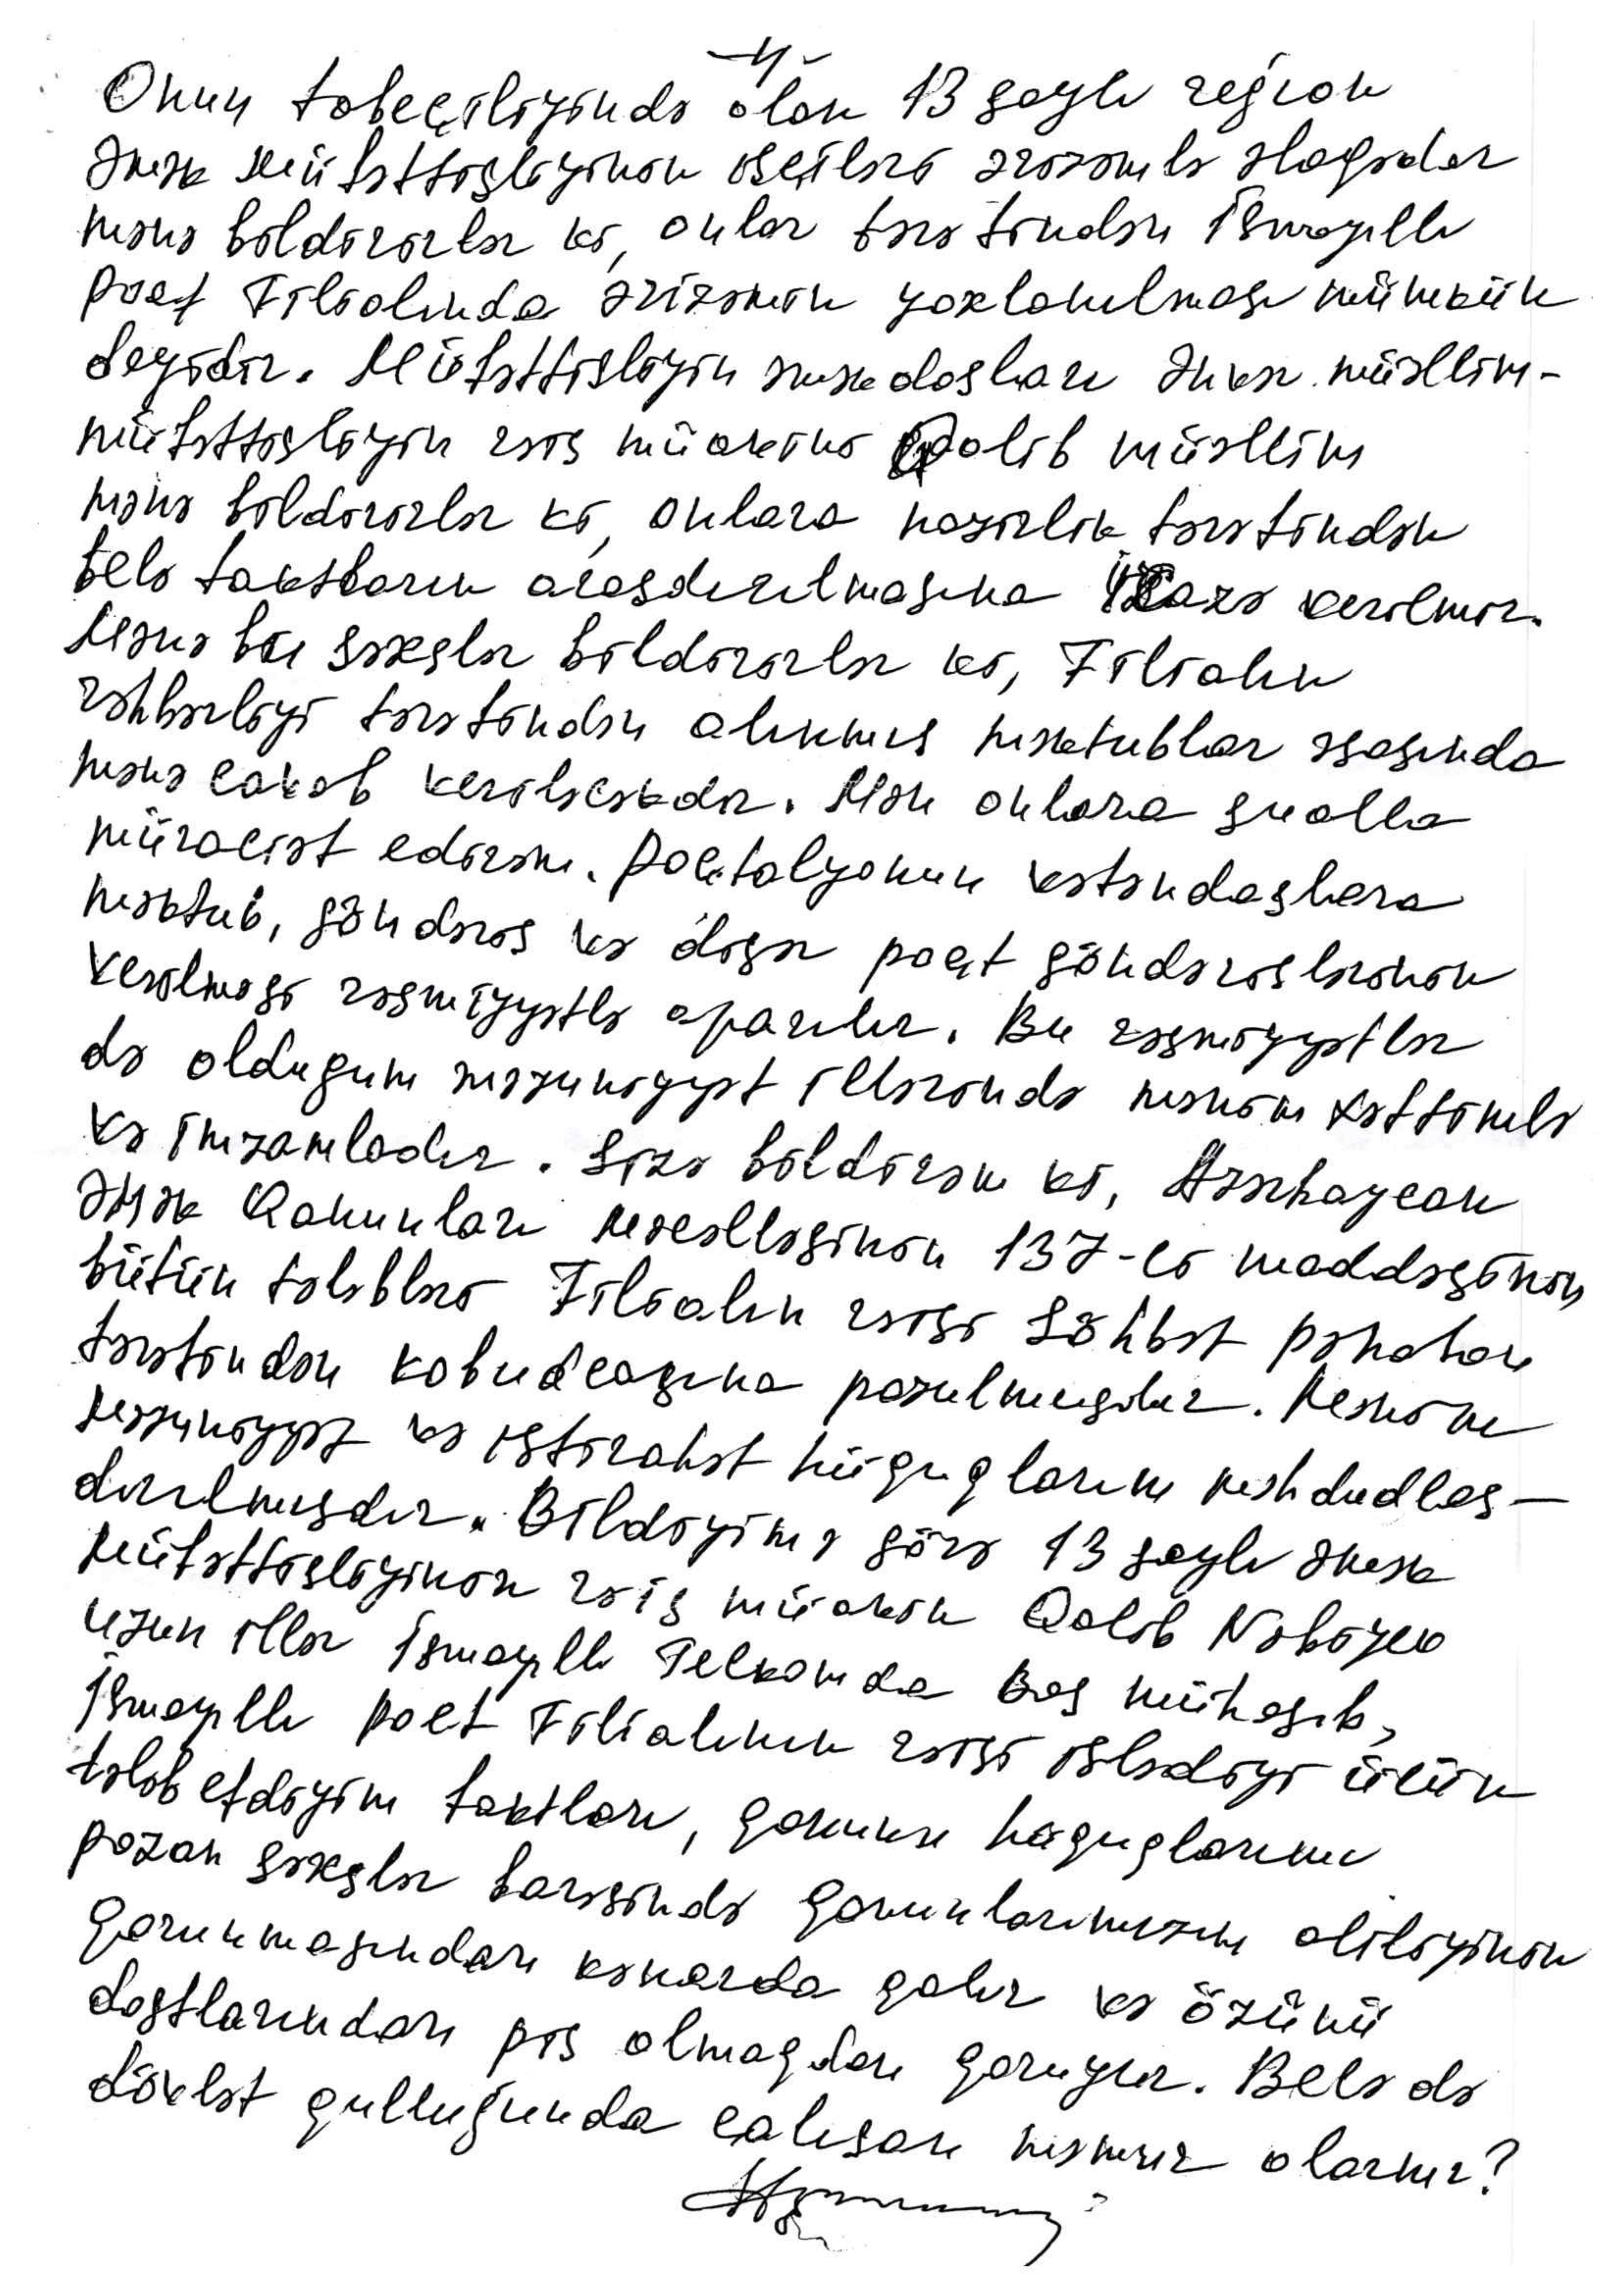 -4-
Onun tabeçiliyində olan 13 saylı region
Əmək Müfəttişliyinin işçiləri ərizəmlə əlaqədar
mənə bildirirlər ki, onlar tərəfindən İsmayıllı
poçt Filialında ərizəmin yoxlanılması mümkün
deyidir. Müfəttişliyin əməkdaşları Ənvər müəllim-
müfəttişliyin rəis müavini Qalib müəllim
mənə bildirirlər ki, onlara nazirlik tərəfindən
belə faktların araşdırılmasına icazə verilmir.
Mənə bu şəxslər bildirirlər ki, Filialın
rəhbərliyi tərəfindən alınmış məktublar əsasında
mənə cavab veriləcəkdir. Mən onlara sualla
müraciət edirəm. Poçtalyonun vətəndaşlara
məktub, göndəriş və digər poçt göndərişlərinin
verilməsi rəsmiyyətlə aparılır. Bu rəsmiyyətlər
də olduğum məzuniyyət illərində mənim xəttimlə
və imzamladır. Sizə bildirəm ki, Azərbaycan
Əmək Qanunları Məcəlləsinin 137-ci maddəsinin
bütün tələbləri Filialın rəisi Söhbət Pənahov
tərəfindən kobudcasına pozulmuşdur. Mənim
Məzuniyyət və istirahət hüquqlarım məhdudlaş-
dırılmışdır. Bildiyimə görə 13 saylı Əmək
Müfəttişliyinin rəis müavin Qalib Nəbiyev
uzun illər İsmayıllı Telkomda Baş mühasib,
İsmayıllı poçt Filialının rəisi işlədiyi üçün
tələb etdiyim faktları, qanuni hüquqlarımı
pozan şəxslər barəsində qanunlarımızın aliliyinin
qorunmasından kənarda qalır və özünü
dostlarından pis olmaqdan qoruyur. Belə də
dövlət qulluğunda çalışan məmur olarmı?